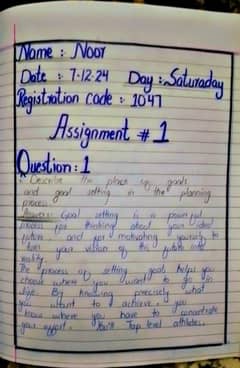 Name : Noor
Date : 7-12-24 Day : Saturaday
Registration code : 1047
Assignment # 1
Question : 1
Describe the place of goals
and goal setting in the planning
process
Answer: Goal setting is a powerful
process for thinking about your ideal
future, and for motivating yourself to
turn your vision of the future into
reality.
The process of setting goals helps you
choose where you want to go in
life. By knowing precisely what
you want to achieve, you
know where you have to concentrate
your effort. Top level athletes,